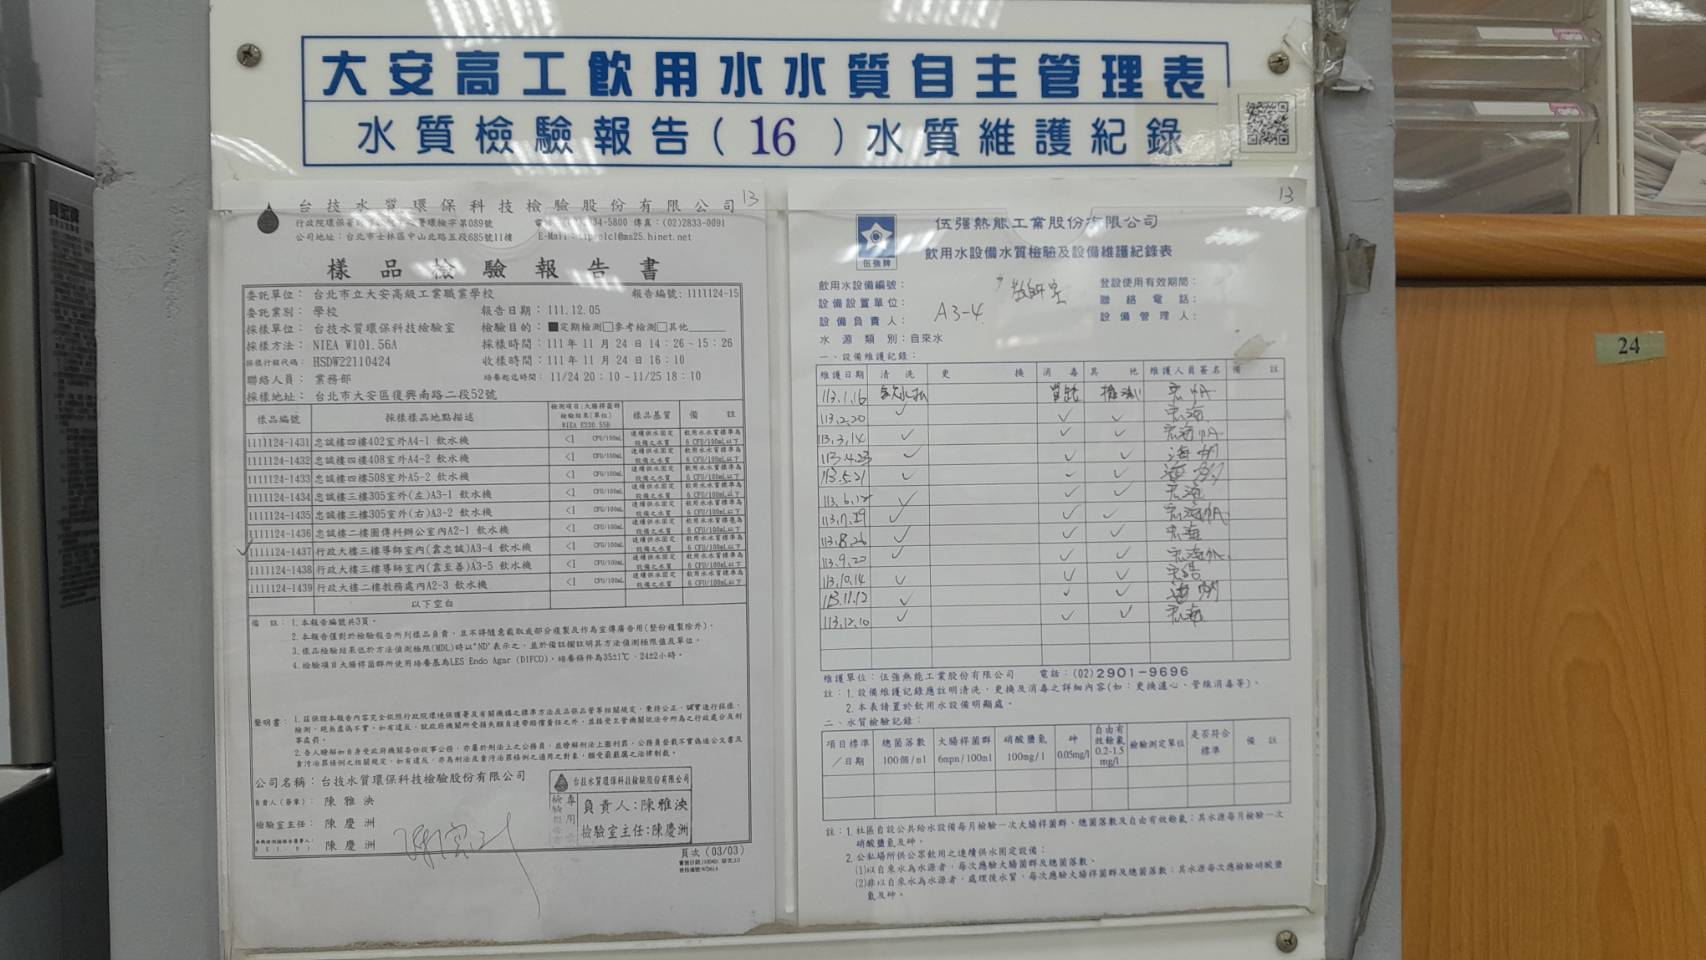 大安高工飲用水水質自主管理表
水質檢驗報告(16)水質維護紀錄
13
台技水質環保科技檢驗股份有限公司
公司地址:台北市士林區中山北路五段685號11樓
樣品檢驗報告書
委託單位: 台北市立大安高級工業職業學校 報告編號: 1111124-15
委託業別: 學校 報告日期: 111.12.05
採樣單位: 台技水質環保科技檢驗室 檢驗目的: ■定期檢測□參考檢測□其他
採樣方法: NIEA W101.56A 採樣時間: 111 年 11 月 24 日 14:26~15:26
採樣行程代碼: HSDW22110424 收樣時間: 111 年 11 月 24 日 16:10
聯絡人員: 業務部 培養起迄時間: 11/24 20:10~11/25 18:10
採樣地址: 台北市大安區復興南路二段52號
樣品編號 採樣樣品地點描述 檢測項目:大腸桿菌群 檢驗結果(單位) NIEA E230.55B 樣品基質 備註
1111124-1431 忠誠樓四樓402室外A4-1 飲水機 <1 CFU/100mL 連續供水固定設備之水質 飲用水水質標準為6 CFU/100mL以下
1111124-1432 忠誠樓四樓408室外A4-2 飲水機 <1 CFU/100mL 連續供水固定設備之水質 飲用水水質標準為6 CFU/100mL以下
1111124-1433 忠誠樓四樓508室外A5-2 飲水機 <1 CFU/100mL 連續供水固定設備之水質 飲用水水質標準為6 CFU/100mL以下
1111124-1434 忠誠樓三樓305室外(左)A3-1 飲水機 <1 CFU/100mL 連續供水固定設備之水質 飲用水水質標準為6 CFU/100mL以下
1111124-1435 忠誠樓三樓305室外(右)A3-2 飲水機 <1 CFU/100mL 連續供水固定設備之水質 飲用水水質標準為6 CFU/100mL以下
1111124-1436 忠誠樓二樓圖傳科辦公室內A2-1 飲水機 <1 CFU/100mL 連續供水固定設備之水質 飲用水水質標準為6 CFU/100mL以下
1111124-1437 行政大樓三樓導師室內(靠忠誠)A3-4 飲水機 <1 CFU/100mL 連續供水固定設備之水質 飲用水水質標準為6 CFU/100mL以下
1111124-1438 行政大樓三樓導師室內(靠至善)A3-5 飲水機 <1 CFU/100mL 連續供水固定設備之水質 飲用水水質標準為6 CFU/100mL以下
1111124-1439 行政大樓二樓教務處內A2-3 飲水機 <1 CFU/100mL 連續供水固定設備之水質 飲用水水質標準為6 CFU/100mL以下
以下空白
備註: 1.本報告編號共3頁。
2.本報告僅對於檢驗報告所列樣品負責,且不得隨意截取或部分複製及作為宣傳廣告用(整份複製除外)。
3.樣品檢驗結果低於方法偵測極限(MDL)時以"ND"表示之,並於備註欄註明其方法偵測極限值及單位。
4.檢驗項目大腸桿菌群所使用培養基為LES Endo Agar (DIFCO),培養條件為35±1℃,24±2小時。
公司名稱:台技水質環保科技檢驗股份有限公司
負責人(簽章): 陳雅泱
檢驗室主任: 陳慶洲
陳慶洲
台技水質環保科技檢驗股份有限公司
負責人:陳雅泱
檢驗室主任:陳慶洲
頁次(03/03)
13
伍強牌
伍強熱能工業股份有限公司
飲用水設備水質檢驗及設備維護紀錄表
飲用水設備編號: 登設使用有效期間:
設備設置單位: 聯絡電話:
設備負責人: A3-4 設備管理人:
水源類別:自來水
一、設備維護記錄:
維護日期 清洗 更換 消毒 其他 維護人員簽名 備註
113.1.16
113.2.20 ✓ ✓ ✓
113.3.14 ✓ ✓ ✓
113.4.23 ✓ ✓ ✓
113.5.21 ✓ ✓ ✓
113.6.12 ✓ ✓ ✓
113.7.29 ✓ ✓ ✓
113.8.26 ✓ ✓ ✓
113.9.20 ✓ ✓ ✓
113.10.14 ✓ ✓ ✓
113.11.12 ✓ ✓ ✓
113.12.10 ✓ ✓ ✓
維護單位:伍強熱能工業股份有限公司 電話:(02)2901-9696
註:1.設備維護記錄應註明清洗、更換及消毒之詳細內容(如:更換濾心、管線消毒等)。
2.本表請置於飲用水設備明顯處。
二、水質檢驗記錄:
項目標準/日期 總菌落數 100個/ml 大腸桿菌群 6mpn/100ml 硝酸鹽氮 100mg/l 砷 0.05mg/l 自由有效餘氯 0.2-1.5 mg/l 檢驗測定單位 是否符合標準 備註
註:1.社區自設公共給水設備每月檢驗一次大腸桿菌群、總菌落數及自由有效餘氯;其水源每月檢驗一次
硝酸鹽氮及砷。
2.公私場所供公眾飲用之連續供水固定設備:
(1)以自來水為水源者,每次應驗大腸菌群及總菌落數。
(2)非以自來水為水源者,處理後水質,每次應驗大腸桿菌群及總菌落數;其水源每次應檢驗硝酸鹽
氮及砷。
24